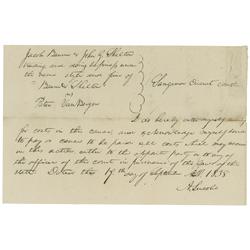 Jacob Bunn & John G Shelton
trading and doing business under
the name style and firm of
Bunn & Shelton
vs
Peter Van Bergen
Sangamon Circuit court
I do hereby enter myself security
for costs in this cause, and acknowledge myself bound
to pay or cause to be paid all costs which may accrue
in this action either to the opposite party or to any of
the officers of this court in pursuance of the laws of this
state. Dated this 19th day of April AD. 1838
A. Lincoln